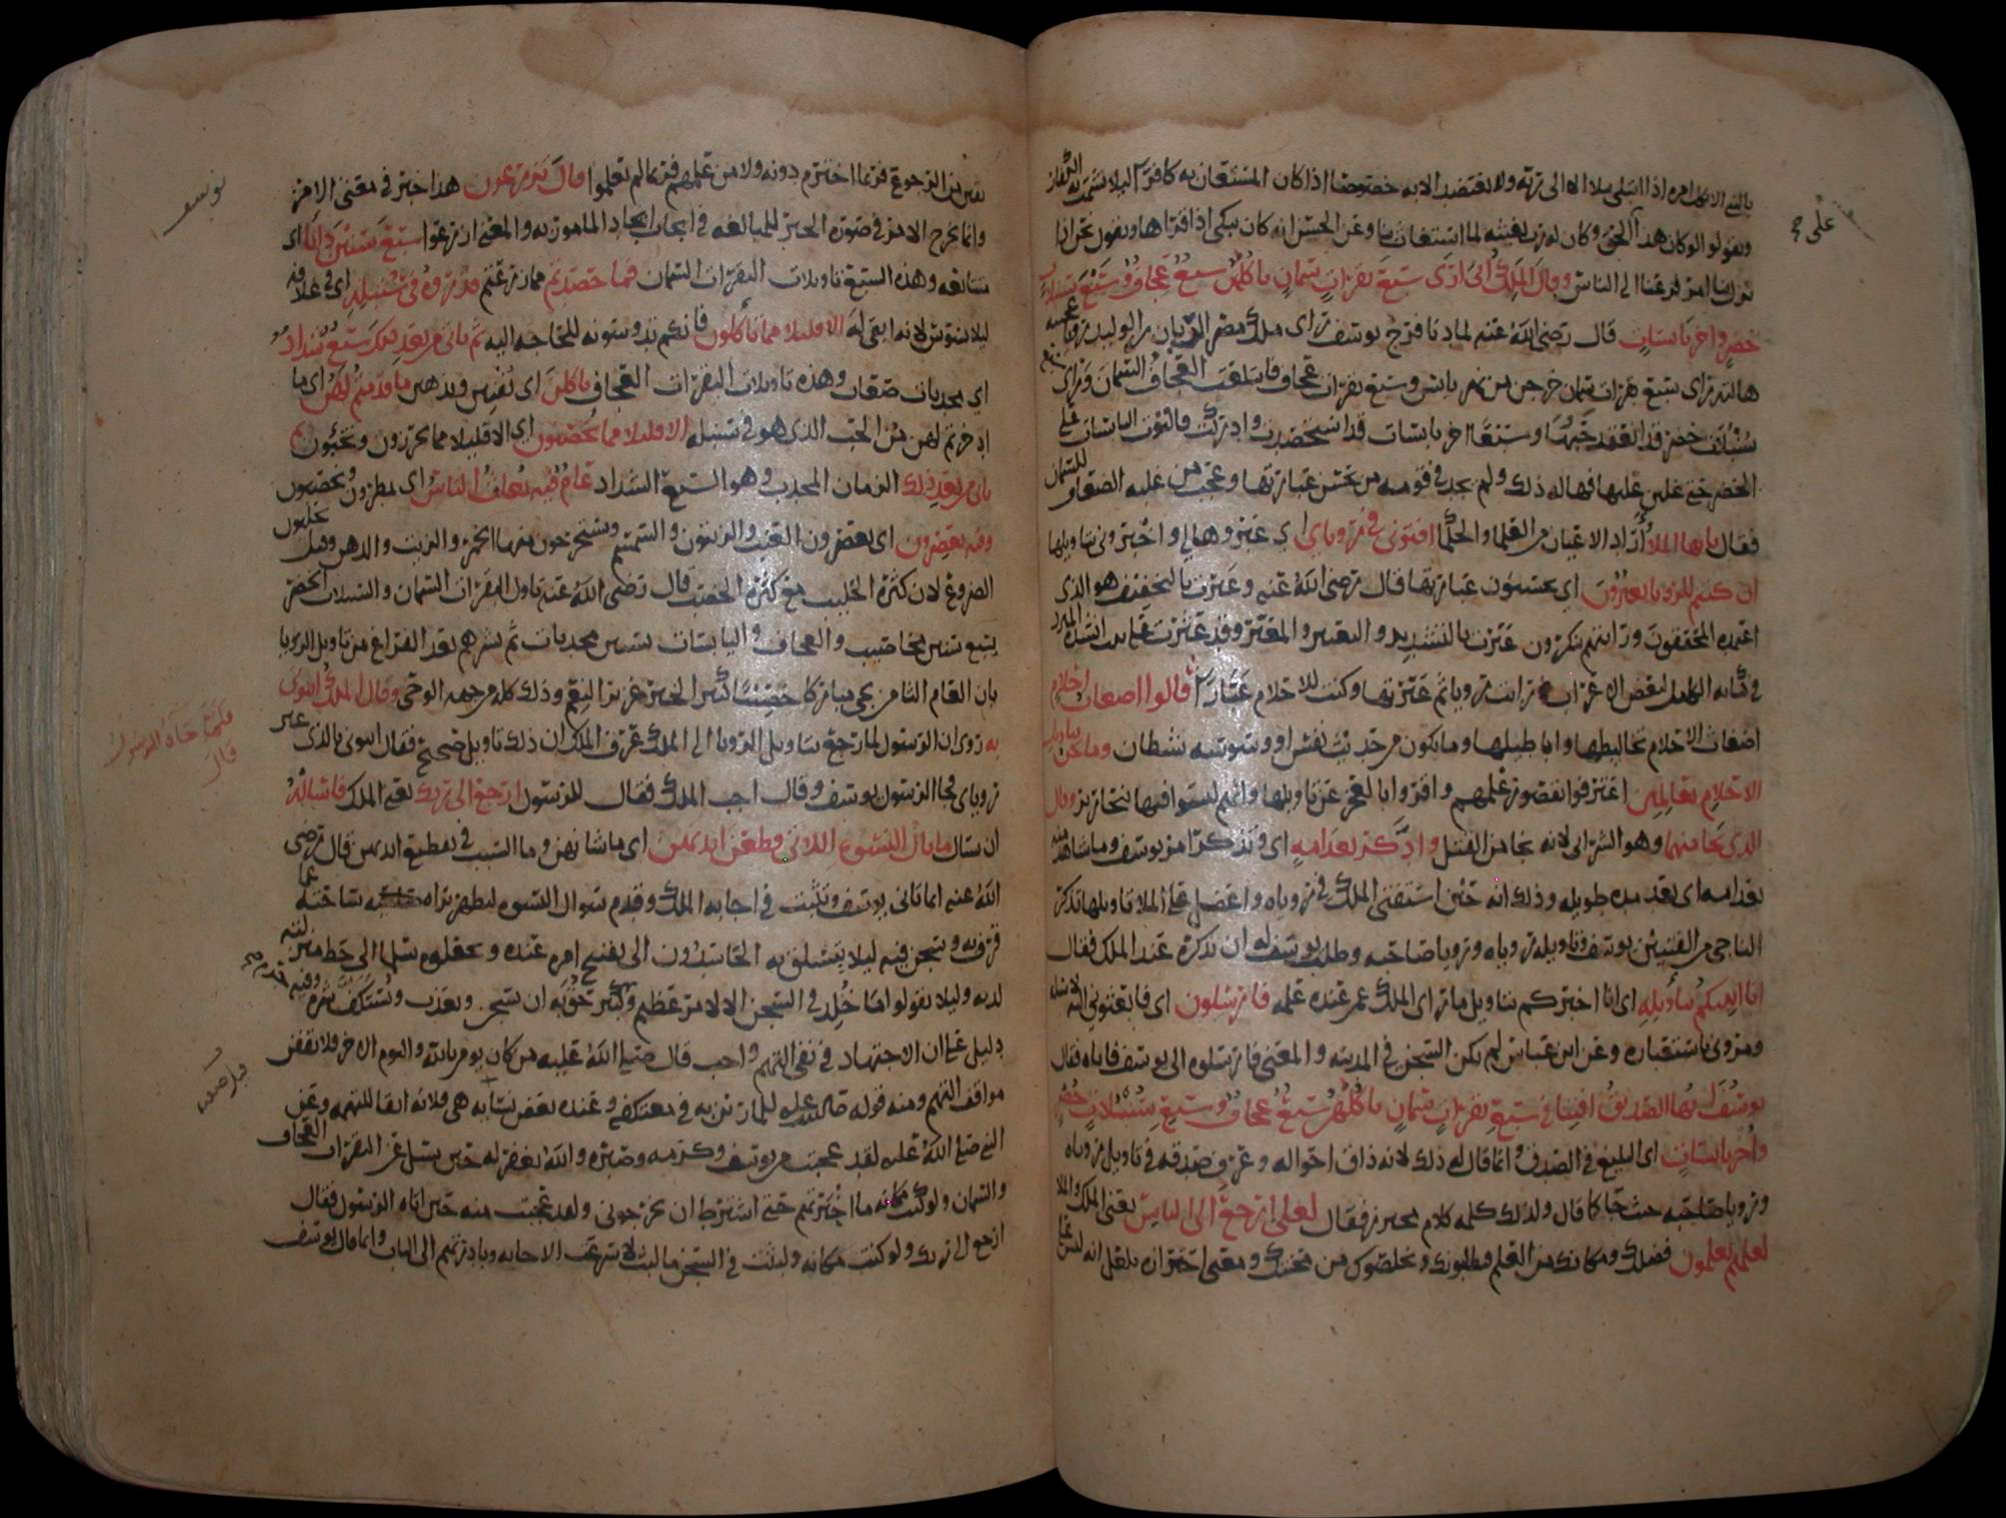 ويقولوا لو كان هذا على الحق وكان له رب يغيثه لما استغاث بنا وعن الحسن انه كان يبكي اذا قراها ويقول نحن اذا
نزل بنا امر فزعنا الى الناس وقال الملك اني ارى سبع بقرات سمان ياكلهن سبع عجاف وسبع سنبلات
خضر واخر يابسات قال رضي الله عنه لما دنا فرج يوسف راى ملك مصر الريان بن الوليد رؤيا عجيبة
هالته راى سبع بقرات سمان خرجن من نهر يابس وسبع بقرات عجاف فابتلعت العجاف السمان وراى سبع
سنبلات خضر قد انعقد حبها وسبعا اخر يابسات قد استحصدت وادركت فالتوت اليابسات على
الخضر حتى غلبن عليها فهاله ذلك ولم يجد في قومه من يحسن عبارتها
فقال يايها الملا اراد الاعيان من العلما والحكما افتوني في روياي اي عبروها لي واخبروني بتاويلها
ان كنتم للرويا تعبرون اي تحسنون عبارتها قال رضي الله عنه وعبرت بالتخفيف هو الذي
اعتمده ورايتهم ينكرون عبرت بالتشديد والتعبير والمعبر وقد عثرت على بيت انشده المبرد
في كتابه الكامل لبعض الاعراب رايت رويا ثم عبرتها وكنت للاحلام عبارا قالوا اضغاث احلام
اضغاث الاحلام تخاليطها واباطيلها وما يكون من حديث نفس او وسوسة شيطان وما نحن بتاويل
الاحلام بعالمين اعترفوا بقصور علمهم واقروا بالعجز عن تاويلها وانهم ليسوا فيها نحارير وقال
الذي نجا منهما وهو الشرابي لانه نجا من القتل وادكر بعد امه اي وتذكر امر يوسف وما شاهد منه
بعد امه اي بعد مدة طويلة وذلك انه حين استفتى الملك في روياه واعضل على الملا تاويلها تذكر
الناجي من الفتيين يوسف وتاويله روياه ورويا صاحبه وطلب يوسف له ان يذكره عند الملك فقال
انا انبيكم بتاويله اي انا اخبركم بتاويل ما راى الملك عمن عنده علمه فارسلون اي فابعثوني اليه لاساله
ومروني باستعباره وعن ابن عباس لم يكن السجن في المدينة والمعنى فارسلوه الى يوسف فاتاه فقال
يوسف ايها الصديق افتنا في سبع بقرات سمان ياكلهن سبع عجاف وسبع سنبلات خضر
واخر يابسات اي البليغ في الصدق وانما قال له ذلك لانه ذاق احواله وعرف صدقه في تاويل روياه
ورويا صاحبه حيث جا كما قال ولذلك كلمه كلام محترز فقال لعلي ارجع الى الناس يعني الملك والملا
لعلهم يعلمون فضلك ومكانك من العلم فيطلبونك ويخلصوك من محنتك
يوسف
دونه ولا من علمهم فربما لم يعلموا قال تزرعون هذا خبر في معنى الامر
وانما يخرج الامر في صورة الخبر للمبالغة في ايجاب ايجاد المامور به والمعنى ازرعوا سبع سنين دابا اي
متتابعة وهذه السبع تاويلات البقرات السمان فما حصدتم مما زرعتم فذروه في سنبله اي في غلافه
ليلا يسوس لانه ابقى له الا قليلا مما تاكلون فانكم تدوسونه للحاجة اليه ثم ياتي من بعد ذلك سبع شداد
اي مجدبات صعاب وهذه تاويلات البقرات العجاف ياكلن اي يفنين ويذهبن ما قدمتم لهن اي ما
ادخرتم لهن من الحب الذي هو في سنبله الا قليلا مما تحصنون اي الا قليلا مما تحرزون وتخبئون ثم
ياتي من بعد ذلك الزمان المجدب وهو السبع الشداد عام فيه يغاث الناس اي يمطرون ويخصبون
وفيه يعصرون اي يعصرون العنب والزيتون والسمسم ويستخرجون منها الخمر والزيت والدهن وقيل يحلبون
الضروع لان كثرة الحليب مع كثرة الخصب قال رضي الله عنه تاول البقرات السمان والسنبلات الخضر
بسبع سنين مخاصيب والعجاف واليابسات بسنين مجدبات ثم بشرهم بعد الفراغ من تاويل الرويا
بان العام الثامن يجي مباركا خصيبا كثير الخير غزير النعم وذلك كله من جهة الوحي وقال الملك ايتوني
به روى ان الرسول لما رجع بتاويل الرويا الى الملك عرف الملك ان ذلك تاويل صحيح فقال ايتوني بالذي عبر
روياي فجا الرسول يوسف وقال اجب الملك فقال للرسول ارجع الى ربك يعني الملك فاساله
فلما جاه الرسول
قال
ان يسال ما بال النسوة اللاتي قطعن ايديهن اي ما شانهن وما السبب في تقطيع ايديهن قال رضي
الله عنه انما تانى يوسف وتثبت في اجابة الملك وقدم سوال النسوة ليظهر براة ساحته عما
قرف به وسجن فيه ليلا يتسلق به الحاسدون الى تقبيح امره عنده ويجعلوه سلما الى حط منزلته
لديه وليلا يقولوا ما خلد في السجن الا لامر عظيم
دليل على ان الاجتهاد في نفي التهم واجب قال صلى الله عليه من كان يومن بالله واليوم الاخر فلا يقفن
مواقف التهم ومنه قوله للمارين به في معتكفه وعنده بعض نسايه هي فلانة اتقا للتهمة وعن
النبي صلى الله عليه لقد عجبت من يوسف وكرمه وصبره والله يغفر له حين يسل عن البقرات العجاف
والسمان ولو كنت مكانه ما اخبرتهم حتى اشترط ان يخرجوني ولقد عجبت منه حين اتاه الرسول فقال
ارجع الى ربك ولو كنت مكانه ولبثت في السجن ما لبث لاسرعت الاجابة وبادرتهم الى الباب وانما قال يوسف